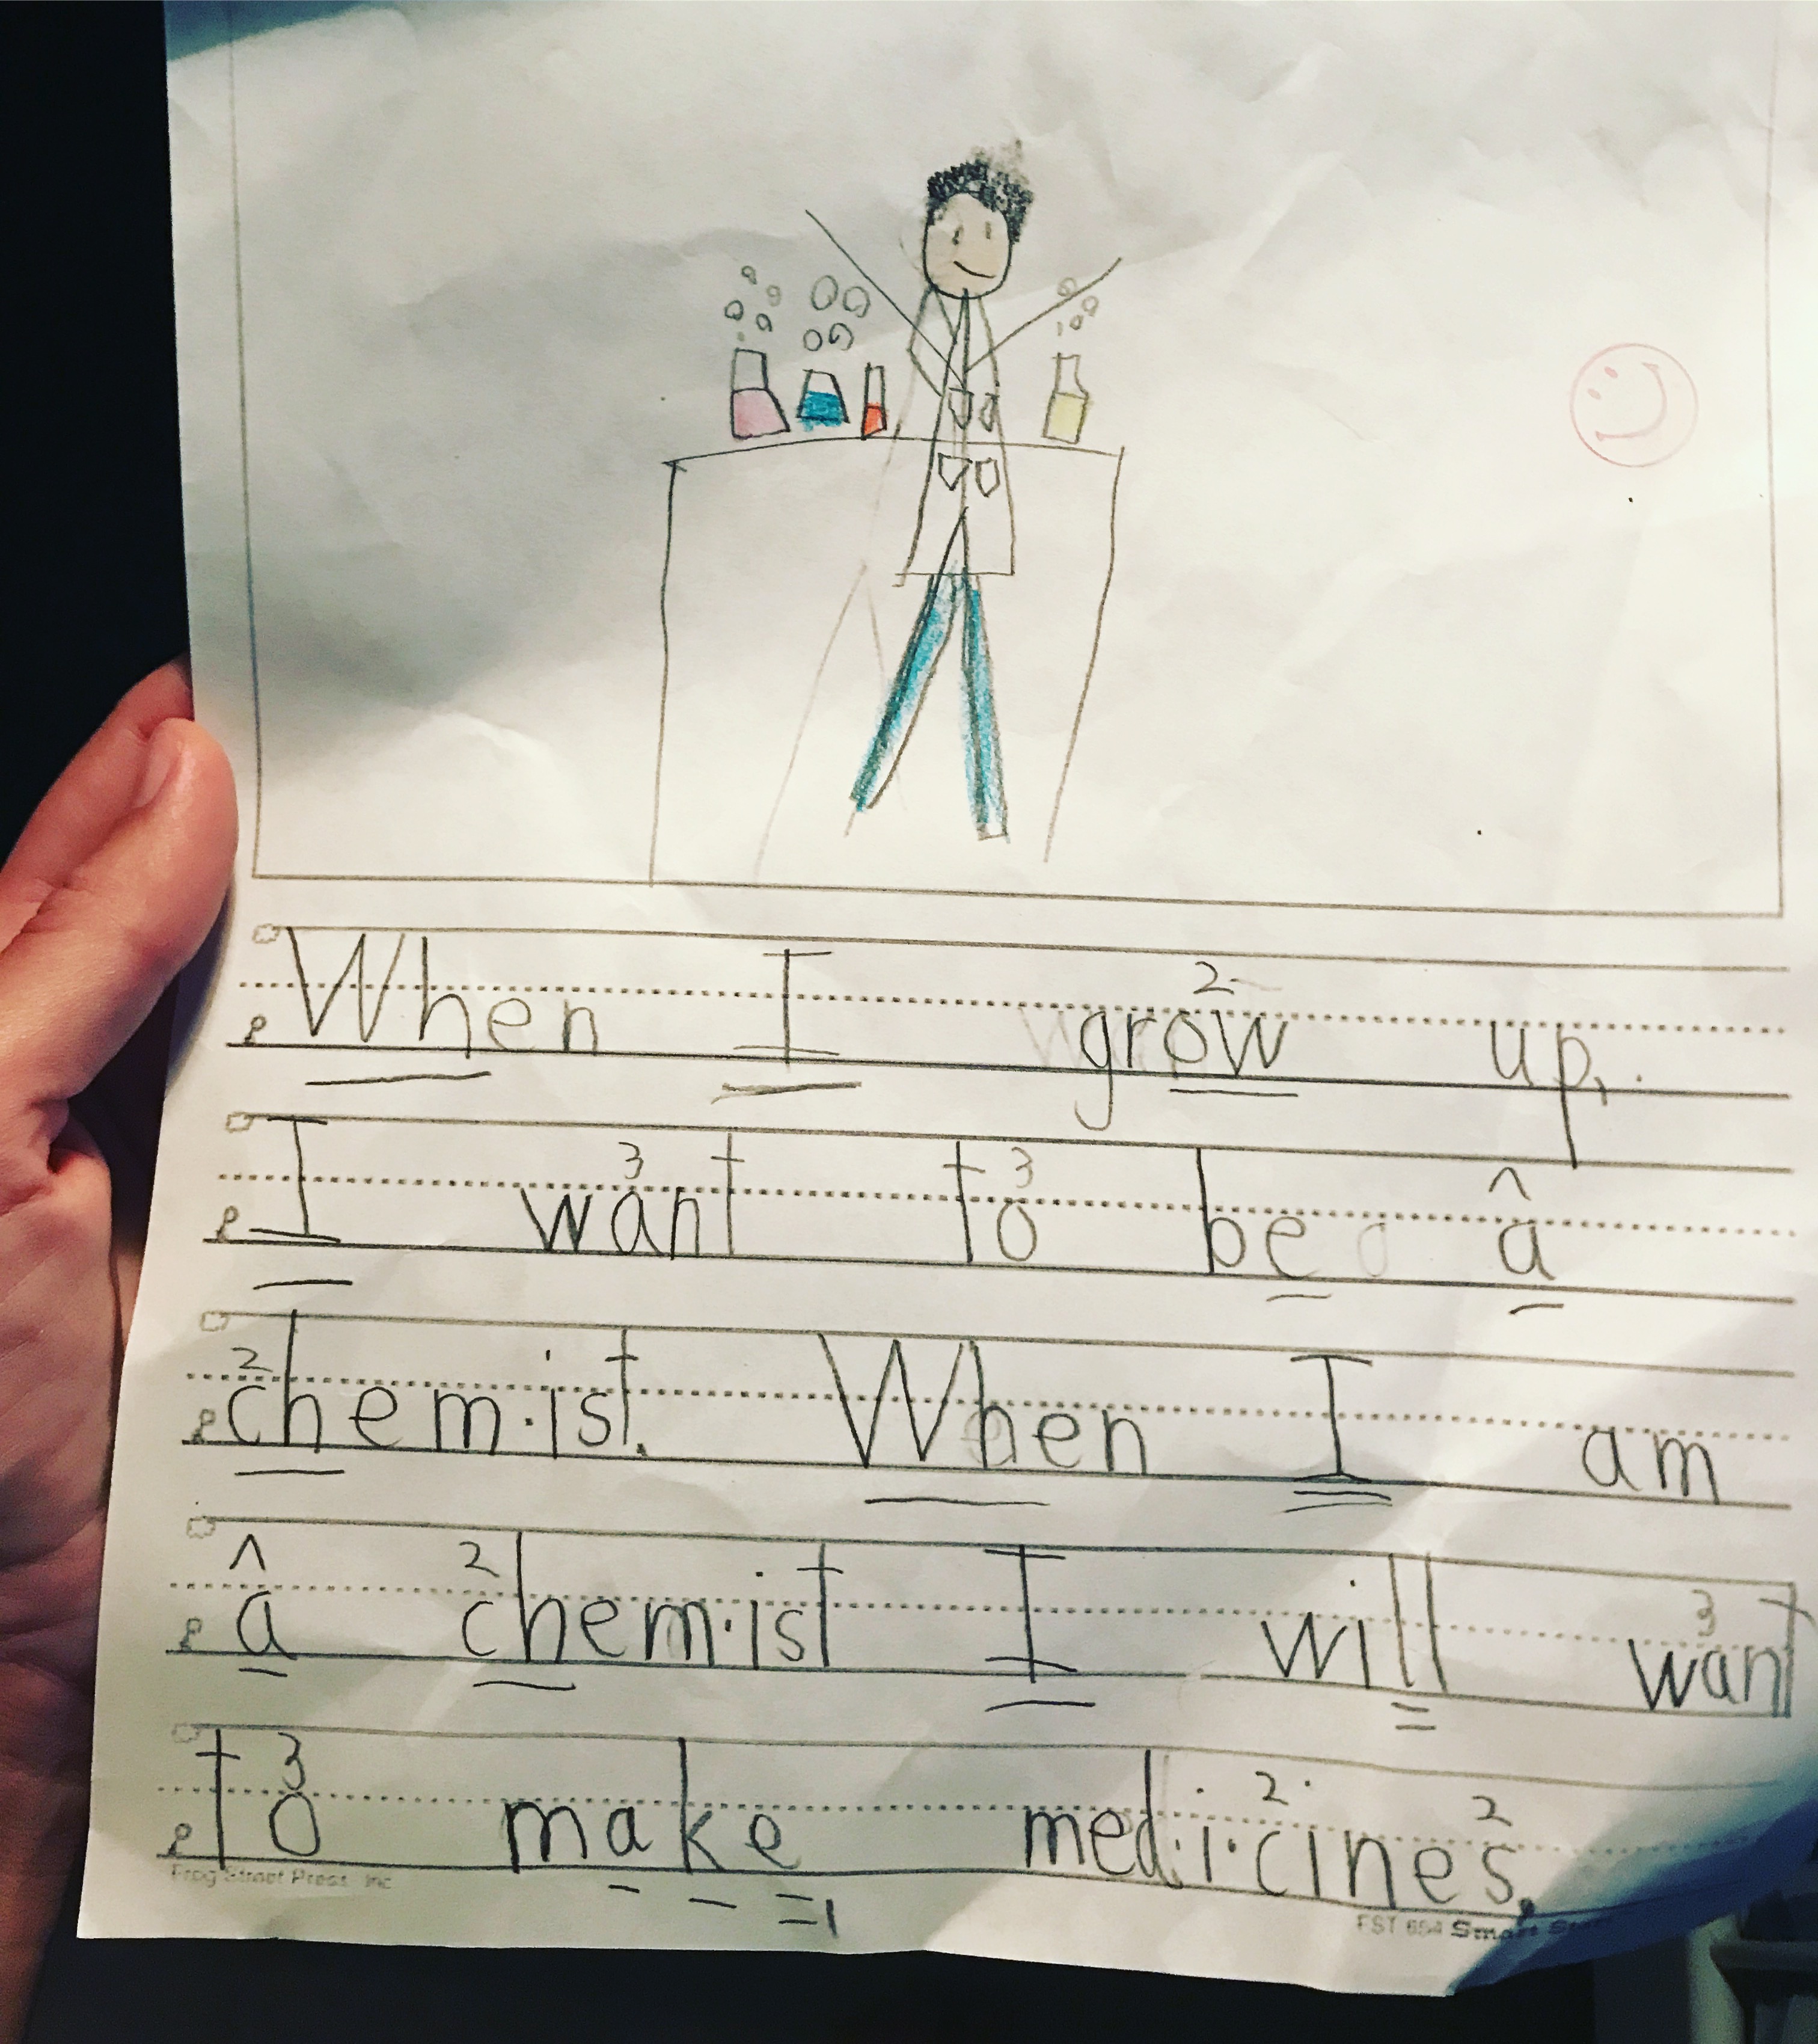 When I grow up,
I want to be a
chem·ist. When I am
a chem·ist I will want
to make med·i·cines.
Frog Street Press, Inc
FST 654 Smart Start